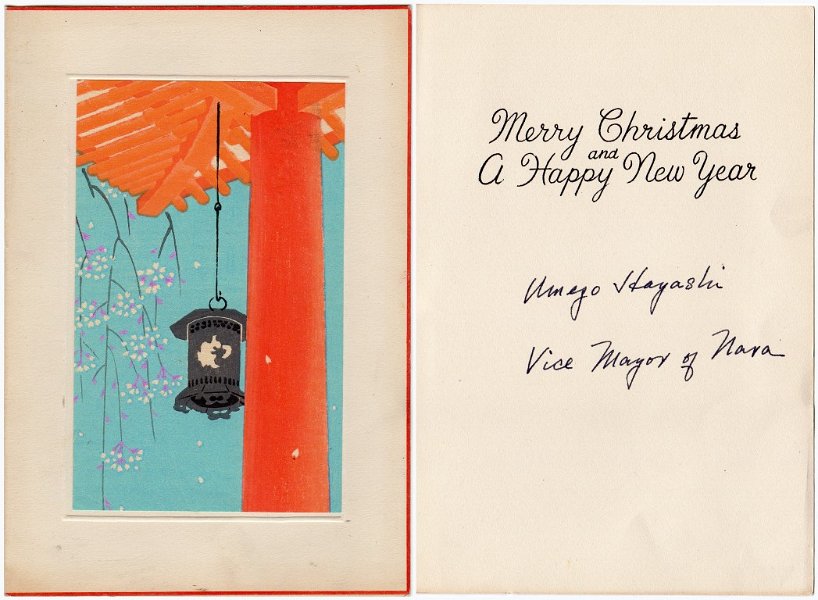 Merry Christmas
and
A Happy New Year
Umezo Hayashi
Vice Mayor of Nara